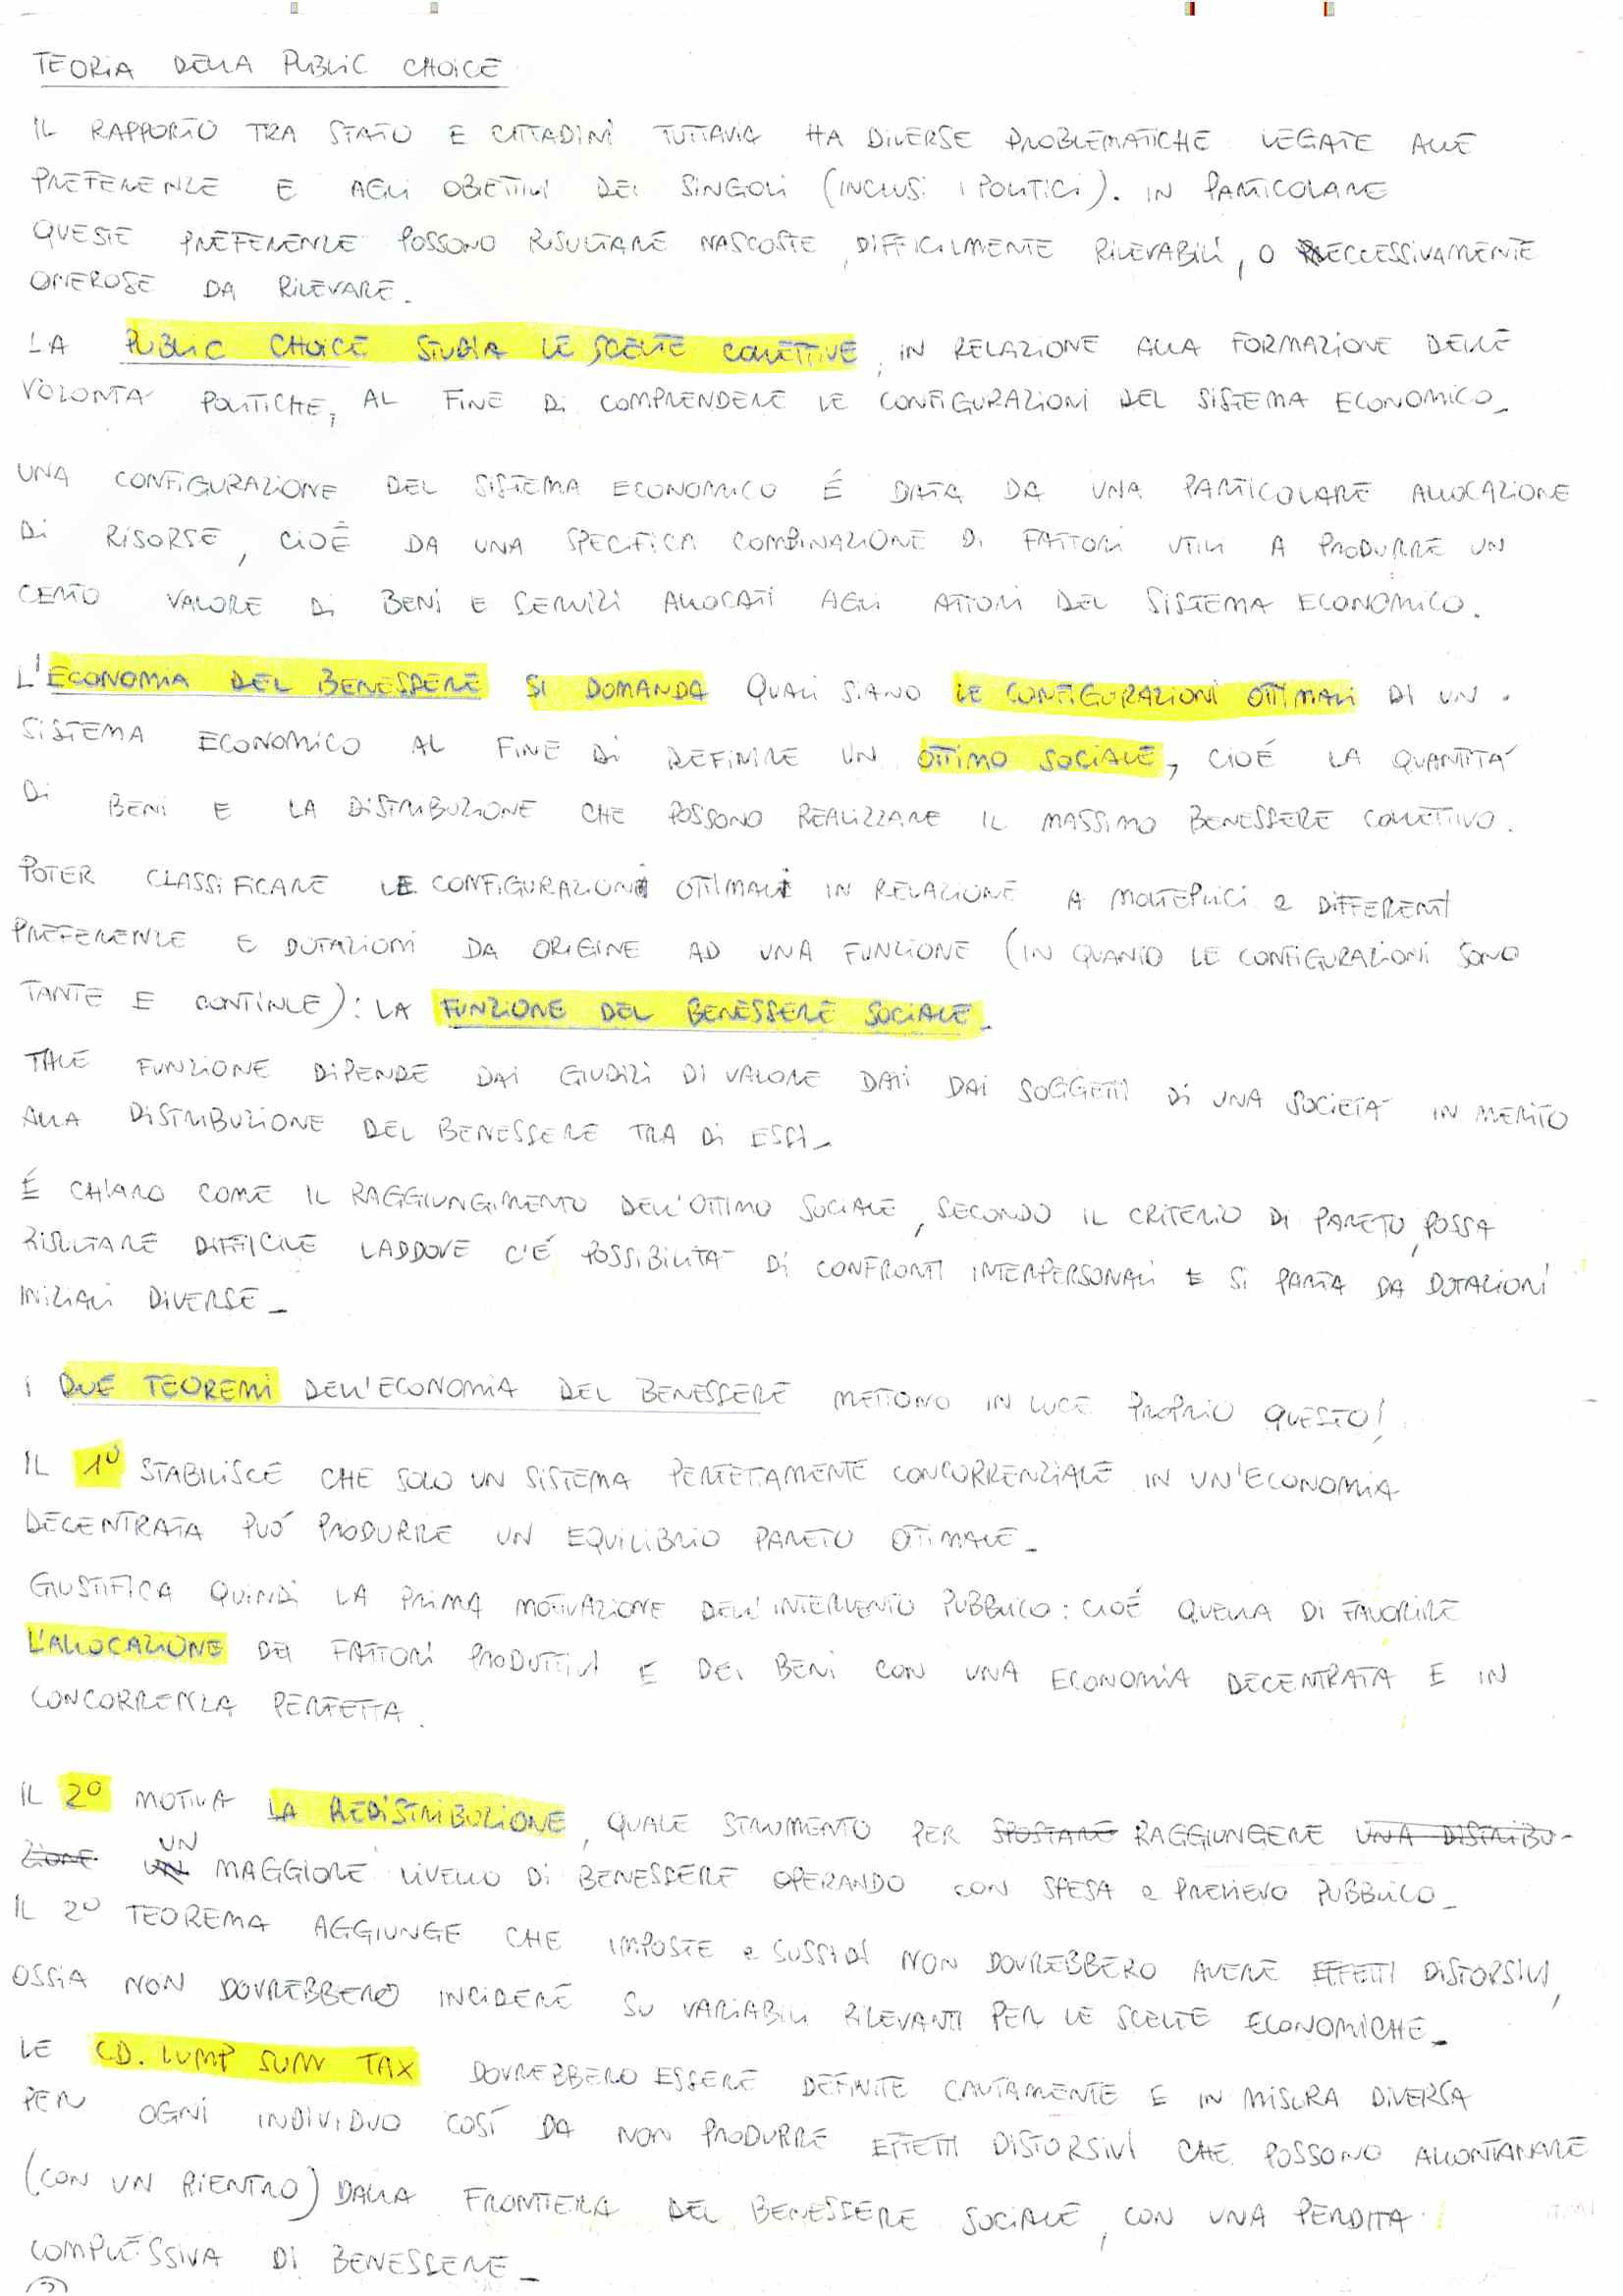 TEORIA DELLA PUBLIC CHOICE
IL RAPPORTO TRA STATO E CITTADINI TUTTAVIA HA DIVERSE PROBLEMATICHE LEGATE ALLE
PREFERENZE E AGLI OBIETTIVI DEI SINGOLI (INCLUSI I POLITICI). IN PARTICOLARE
QUESTE PREFERENZE POSSONO RISULTARE NASCOSTE, DIFFICILMENTE RILEVABILI, O ECCESSIVAMENTE
ONEROSE DA RILEVARE.
LA PUBLIC CHOICE STUDIA LE SCELTE COLLETTIVE, IN RELAZIONE ALLA FORMAZIONE DELLE
VOLONTA' POLITICHE, AL FINE DI COMPRENDERE LE CONFIGURAZIONI DEL SISTEMA ECONOMICO_
UNA CONFIGURAZIONE DEL SISTEMA ECONOMICO É DATA DA UNA PARTICOLARE ALLOCAZIONE
DI RISORSE, CIOÉ DA UNA SPECIFICA COMBINAZIONE DI FATTORI UTILI A PRODURRE UN
CERTO VALORE DI BENI E SERVIZI ALLOCATI AGLI ATTORI DEL SISTEMA ECONOMICO.
L'ECONOMIA DEL BENESSERE SI DOMANDA QUALI SIANO LE CONFIGURAZIONI OTTIMALI DI UN
SISTEMA ECONOMICO AL FINE DI DEFINIRE UN OTTIMO SOCIALE, CIOÉ LA QUANTITA'
DI BENI E LA DISTRIBUZIONE CHE POSSONO REALIZZARE IL MASSIMO BENESSERE COLLETTIVO.
POTER CLASSIFICARE LE CONFIGURAZIONI OTTIMALI IN RELAZIONE A MOLTEPLICI e DIFFERENTI
PREFERENZE E DOTAZIONI DA ORIGINE AD UNA FUNZIONE (IN QUANTO LE CONFIGURAZIONI SONO
TANTE E CONTINUE): LA FUNZIONE DEL BENESSERE SOCIALE_
TALE FUNZIONE DIPENDE DAI GIUDIZI DI VALORE DATI DAI SOGGETTI DI UNA SOCIETA' IN MERITO
ALLA DISTRIBUZIONE DEL BENESSERE TRA DI ESSI_
É CHIARO COME IL RAGGIUNGIMENTO DELL'OTTIMO SOCIALE, SECONDO IL CRITERIO DI PARETO, POSSA
RISULTARE DIFFICILE LADDOVE C'É POSSIBILITA' DI CONFRONTI INTERPERSONALI E SI PARTA DA DOTAZIONI
INIZIALI DIVERSE_
I DUE TEOREMI DELL'ECONOMIA DEL BENESSERE METTONO IN LUCE PROPRIO QUESTO!
IL 1º STABILISCE CHE SOLO UN SISTEMA PERFETTAMENTE CONCORRENZIALE IN UN'ECONOMIA
DECENTRATA PUÓ PRODURRE UN EQUILIBRIO PARETO OTTIMALE_
GIUSTIFICA QUINDI LA PRIMA MOTIVAZIONE DELL'INTERVENTO PUBBLICO: CIOÉ QUELLA DI FAVORIRE
L'ALLOCAZIONE DEI FATTORI PRODUTTIVI E DEI BENI CON UNA ECONOMIA DECENTRATA E IN
CONCORRENZA PERFETTA.
IL 2º MOTIVA LA REDISTRIBUZIONE, QUALE STRUMENTO PER SPOSTARE RAGGIUNGERE UNA DISTRIBU-
ZIONE UN UN MAGGIORE LIVELLO DI BENESSERE OPERANDO CON SPESA e PRELIEVO PUBBLICO_
IL 2º TEOREMA AGGIUNGE CHE IMPOSTE e SUSSIDI NON DOVREBBERO AVERE EFFETTI DISTORSIVI,
OSSIA NON DOVREBBERO INCIDERE SU VARIABILI RILEVANTI PER LE SCELTE ECONOMICHE_
LE CD. LUMP SUM TAX DOVREBBERO ESSERE DEFINITE CAUTAMENTE E IN MISURA DIVERSA
PER OGNI INDIVIDUO COSÍ DA NON PRODURRE EFFETTI DISTORSIVI CHE POSSONO ALLONTANARE
(CON UN RIENTRO) DALLA FRONTIERA DEL BENESSERE SOCIALE, CON UNA PERDITA
COMPLESSIVA DI BENESSERE_